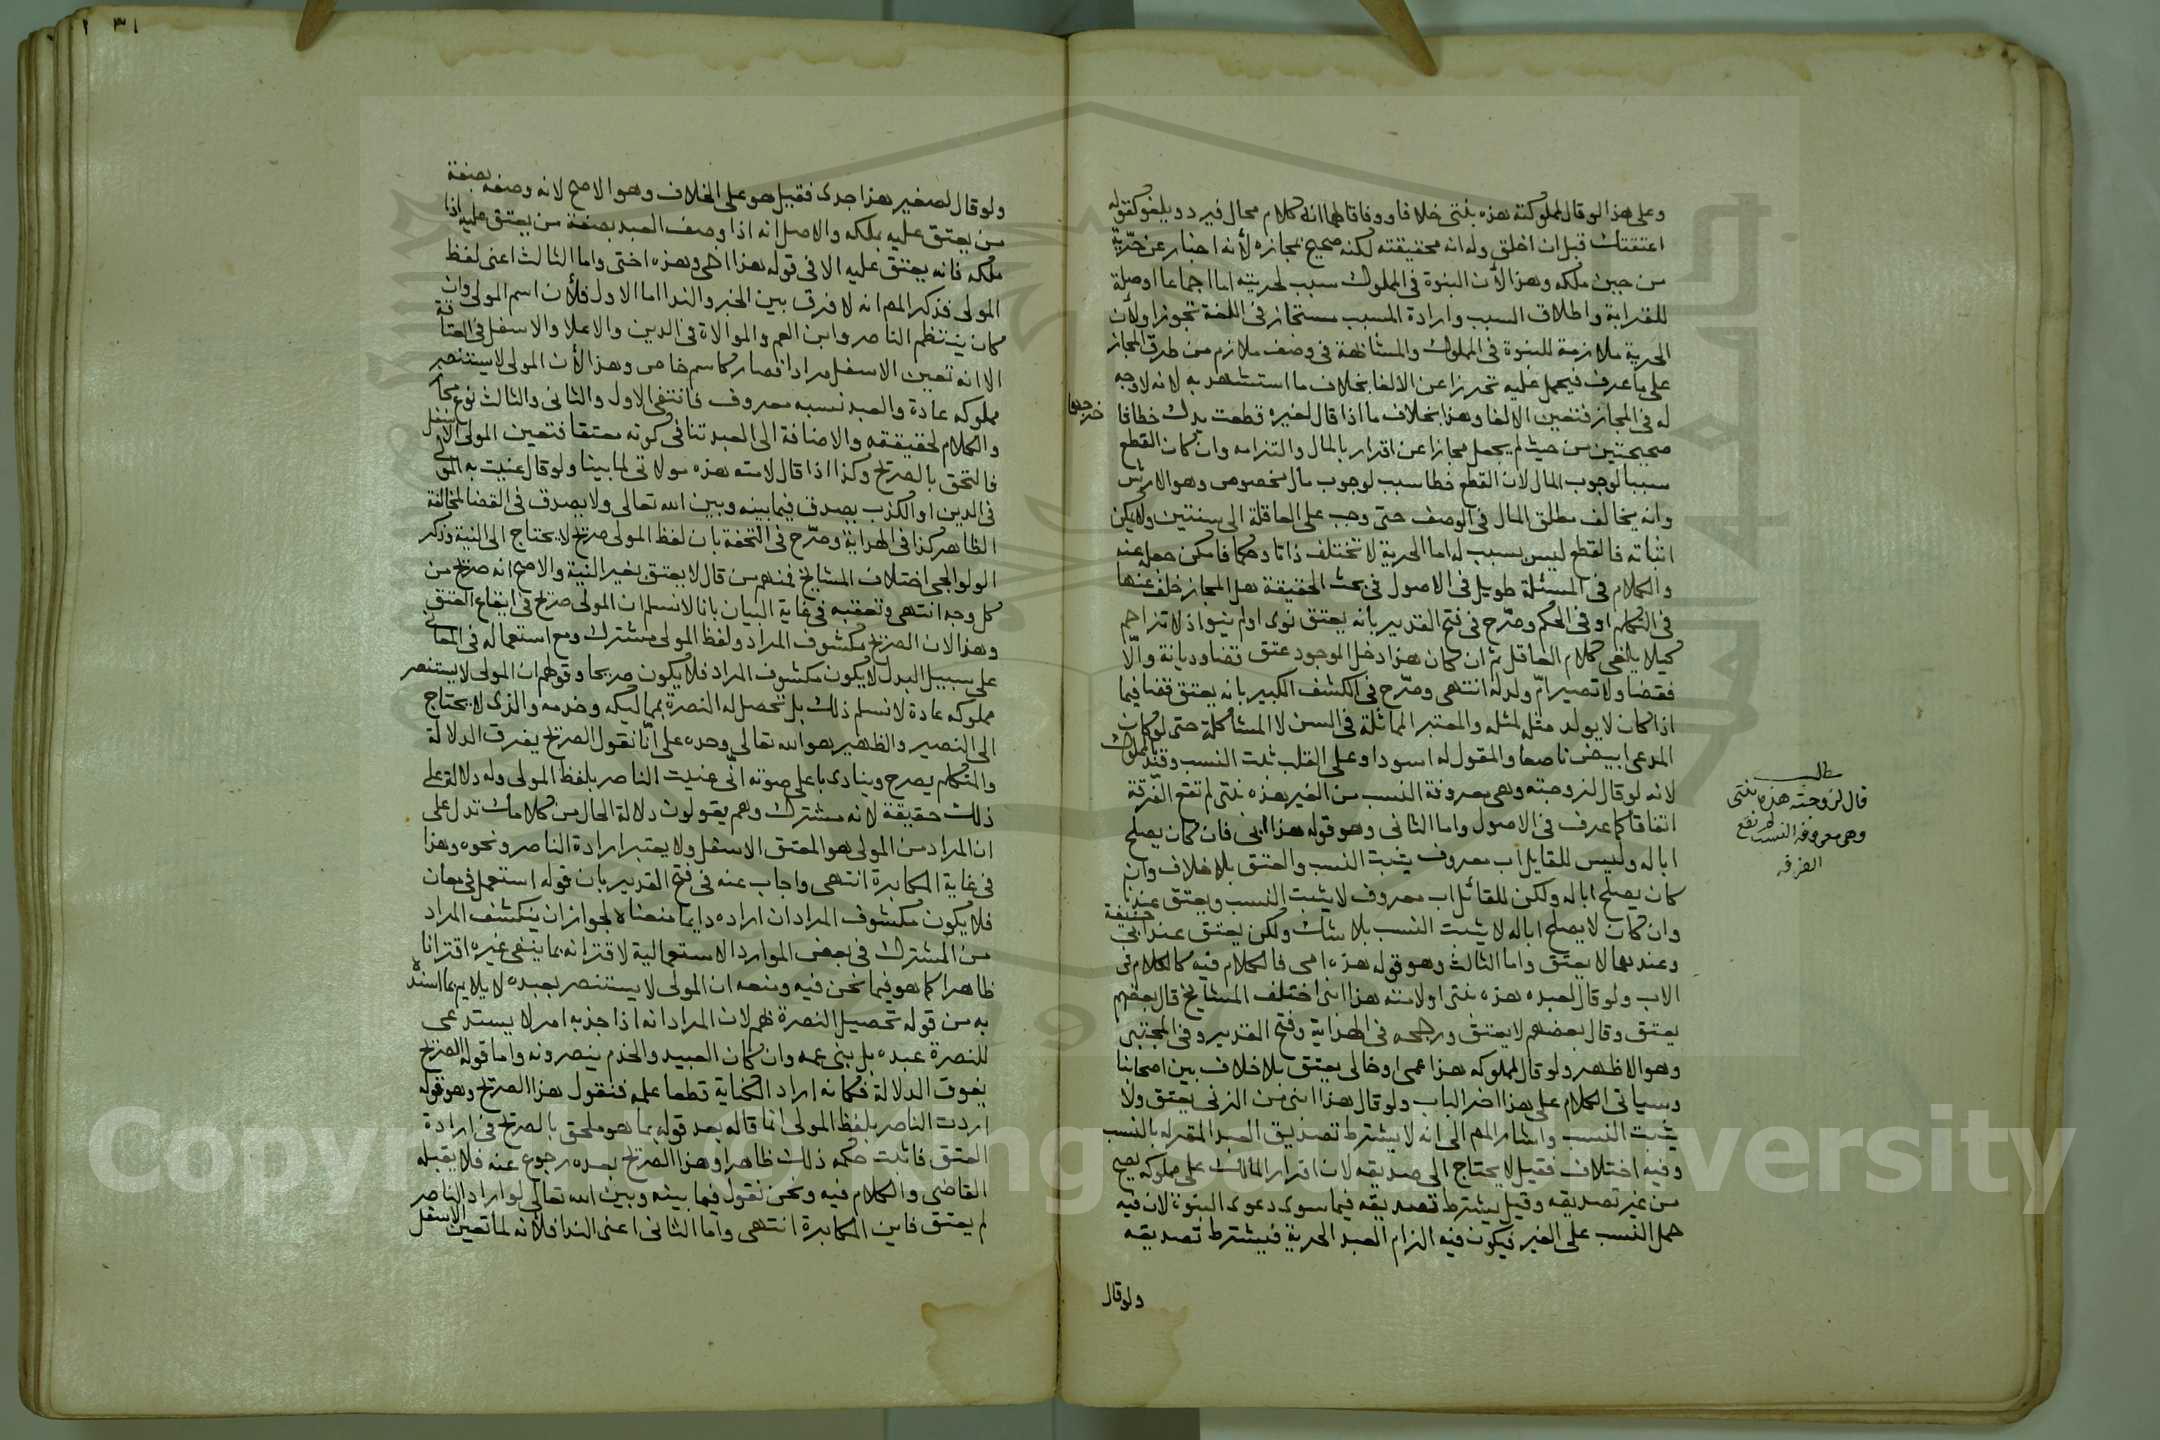 وعلى هذا لو قال لمملوكته هذه بنتى خلافا ووفاقا لهما انه كلام محال فيرد ويلغو كقوله
اعتقتك قبل ان اخلق وله انه محقيقته لكنه صحيح بمجازه لأنه اخبار عن حرّيّة
من حين ملكه وهذا لأن البنوة فى المملوك سبب لحريته اما اجماعا اوصلة
للقرابة واطلاق السبب وارادة المسبب مستجاز فى اللغة تجوزا ولأن
الحرية ملازمة للبنوة فى المملوك والمشابهة فى وصف ملازم من طرق المجاز
على ما عرف فيحمل عليه تحرزا عن الالغا بخلاف ما استشهد به لانه لا وجه
له فى المجاز فتعين الالغا وهذا بخلاف ما اذا قال لغيره قطعت يدك خطا فا
خرجهما
صحيحتين من حيث لم يجعل مجازا عن اقرار بالمال والتزامه وان كان القطع
سببا لوجوب المال لان القطع خطا سبب لوجوب مال مخصوص وهو الارش
وانه يخالف مطلق المال فى الوصف حتى وجب على العاقلة الى سنتين ولا يمكن
اثباته فالقطع ليس بسبب له اما الحرية لا تختلف ذاتا وحكما فامكن جعله عنه
والكلام فى المسئلة طويل فى الاصول فى بحث الحقيقة هل المجاز خلف عنها
فى التكلم او فى الحكم وصرّح فى فتح القدير بانه يعتق نوى او لم ينو اذ لا تزاحم
كيلا يلغى كلام العاقل ثم ان كان هذا دخل الموجود عتق قضا وديانة والّا
فقضا ولا تصير امّ ولد له انتهى وصرّح فى الكشف الكبير بانه يعتق قضا فيما
اذا كان لا يولد مثله لمثله والمعتبر المماثلة فى السن لا المشاكلة حتى لو كان
المدعى ابيض ناصعا والمقول له اسود او على القلب ثبت النسب وقيد بالمملوك
لانه لو قال لزوجته وهى معروفة النسب من الغير هذه بنتى لم تقع الفرقة
اتفاقا كما عرف فى الاصول واما الثانى وهو قوله هذا ابى فان كان يصلح
ابا له وليس للقايل اب معروف يثبت النسب والعتق بلا خلاف وان
كان يصلح ابا له ولكن للقائل اب معروف لا يثبت النسب ويعتق عندنا
وان كان لا يصلح ابا له لا يثبت النسب بلا شك ولكن يعتق عند ابى حنيفة
وعندهما لا يعتق واما الثالث وهو قوله هذه امى فالكلام فيه كالكلام فى
الاب ولو قال لعبده هذه بنتى او لامته هذا ابنى اختلف المشايخ قال بعضهم
يعتق وقال بعضهم لا يعتق ورجحه فى الهداية وفتح القدير وفى المجتبى
وهو الاظهر ولو قال لمملوكه هذا عمى او خالى يعتق بلا خلاف بين اصحابنا
وسياتى الكلام على هذا اخر الباب ولو قال هذا ابنى من الزنى يعتق ولا
يثبت النسب واشار المص الى انه لا يشترط تصديق العبد المقر له بالنسب
وفيه اختلاف فقيل لا يحتاج الى صديقه لان اقرار المالك على مملوكه يصح
من غير تصديقه وقيل يشترط تصديقه فيما سوى دعوى البنوة لان فيه
حمل النسب على الغير فيكون فيه الزام العبد الحرية فيشترط تصديقه
ولو قال
طلب
قال لزوجته هذه بنتى
وهى معروفة النسب لم تقع
الفرقه
٢٣١
ولو قال لصغير هذا جدى فقيل هو على الخلاف وهو الاصح لانه وصفه بصفة
من يعتق عليه بملكه والاصل انه اذا وصف العبد بصفة من يعتق عليه اذا
ملكه فانه يعتق عليه الا فى قوله هذا اخى وهذه اختى واما الثالث اعنى لفظ
المولى فذكر المص انه لا فرق بين الخبر والندا اما الاول فلأن اسم المولى وان
كان ينتظم الناصر وابن العم والموالاة فى الدين والاعلا والاسفل فى العتاقة
الا انه تعين الاسفل مرادا فصار كاسم خاص وهذا لأن المولى لا يستنصر
مملوكه عادة والعبد نسبه معروف فانتفى الاول والثانى والثالث نوع مجاز
والكلام لحقيقته والاضافة الى العبد تنافى كونه معتقا فتعين المولى الاسفل
فالتحق بالصريح وكذا اذا قال لامته هذه مولاتى لما بينا ولو قال عنيت به المولى
فى الدين او الكذب يصدق فيما بينه وبين الله تعالى ولا يصدق فى القضا لمخالفة
الظاهر كذا فى الهداية وصرّح فى التحفة بان لفظ المولى صريح لا يحتاج الى النية وذكر
الولوالجى اختلاف المشايخ فمنهم من قال لا يعتق بغير النية والاصح انه صريح من
كل وجه انتهى وتعقبه فى غاية البيان بانا لا نسلم ان المولى صريح فى ايقاع العتق
وهذا لان الصريح مكشوف المراد ولفظ المولى مشترك ومع استعماله فى المعانى
على سبيل البدل لا يكون مكشوف المراد فلا يكون صريحا وقولهم ان المولى لا يستنصر
مملوكه عادة لا نسلم ذلك بل تحصل له النصرة بمماليكه وخدمه والذى لا يحتاج
الى النصير والظهير هو الله تعالى وحده على انّا نقول الصريح يفوق الدلالة
والمتكلم يصرح وينادى باعلى صوته انّى عنيت الناصر بلفظ المولى وله دلالة على
ذلك حقيقة لانه مشترك وهم يقولون دلالة الحال من كلامك تدل على
ان المراد من المولى هو المعتق الاسفل ولا يعتبر ارادة الناصر ونحوه وهذا
فى غاية المكابرة انتهى واجاب عنه فى فتح القدير بان قوله استعمل فى معان
فلا يكون مكشوف المراد ان اراده دايما منعناه لجواز ان ينكشف المراد
من المشترك فى بعض الموارد الاستعمالية لاقترانه بما ينفى غيره اقترانا
ظاهرا كما هو فيما نحن فيه ومنعه ان المولى لا يستنصر بعبده لا يلايم ما اسنده
به من قوله تحصيل النصرة بهم لان المراد انه اذا حزبه امر لا يستدعى
للنصرة عبده بل بنى عمه وان كان العبيد والخدم ينصرونه واما قوله الصريح
يفوق الدلالة فكانه اراد الكناية قطعا علمه فنقول هذا الصريح وهو قوله
اردت الناصر بلفظ المولى انما قاله بعد قوله بما هو ملحق بالصريح فى ارادة
العتق فاثبت حكمه ذلك ظاهرا وهذا الصريح بعده رجوع عنه فلا يقبله
القاضى والكلام فيه ونحن نقول فيما بينه وبين الله تعالى لو اراد الناصر
لم يعتق فاين المكابرة انتهى واما الثانى اعنى الندا فلانه لما تعين الاسفل
Copyright © King Saud University